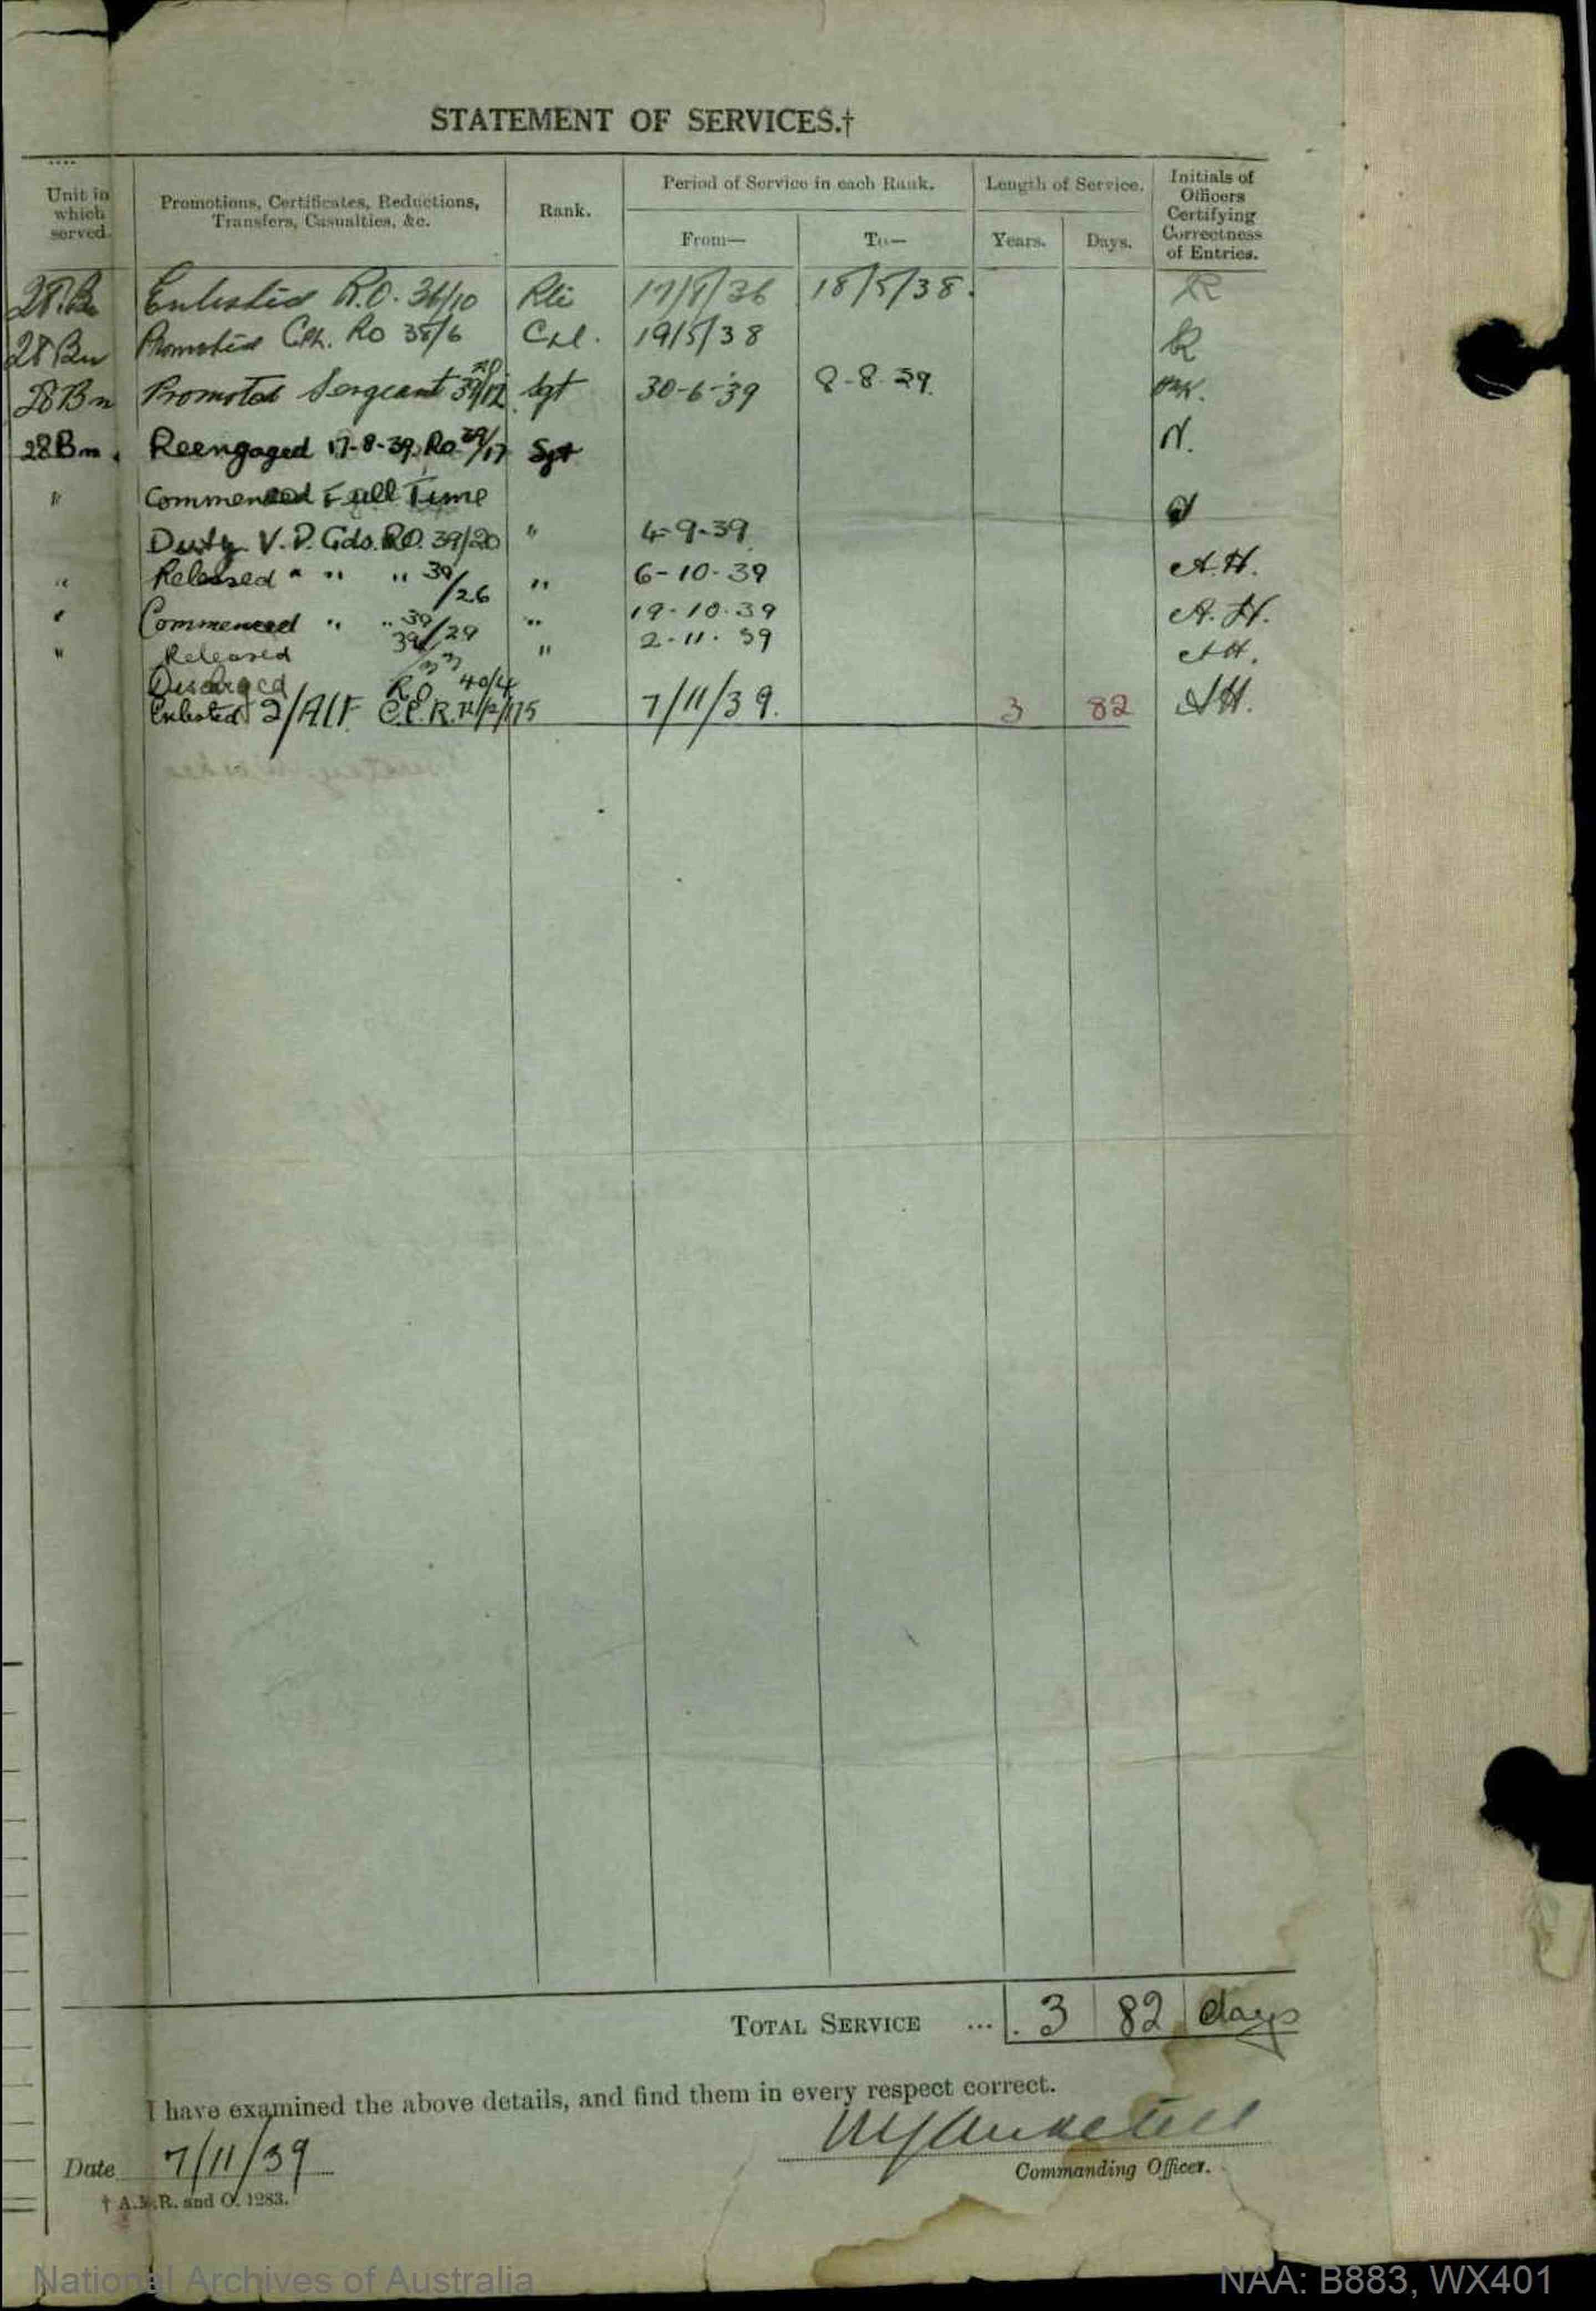 STATEMENT OF SERVICES.†
Unit in which served.
Promotions, Certificates, Reductions, Transfers, Casualties, &c.
Rank.
Period of Service in each Rank.
From—
To—
Length of Service.
Years.
Days.
Initials of Officers Certifying Correctness of Entries.
28.Bn Enlisted R.O. 36/10 Rfi 17/8/36 18/5/38. R
28 Bn Promoted Cpl. RO 38/6 Cpl. 19/5/38 R
28 Bn Promoted Sergeant RO 39/12 Sgt 30-6-39 8-8-39.
28 Bn. Reengaged 17-8-39. Ro 39/17 Sgt N.
" Commenced Full Time
Duty V.D. Gds. RO. 39/20 " 4-9-39
" Released " " " 39/26 " 6-10-39 A.H.
" Commenced " " 39/29 " 19-10-39 A.H.
" Released 39/33 " 2-11-39 AH.
Discharged R.O. 40/4
Enlisted 2/AIF. 7/11/39. 3 82 AH.
TOTAL SERVICE ... 3 82 days
I have examined the above details, and find them in every respect correct.
Commanding Officer.
Date 7/11/39
† A.M.R. and O. 1283.
National Archives of Australia
NAA: B883, WX401